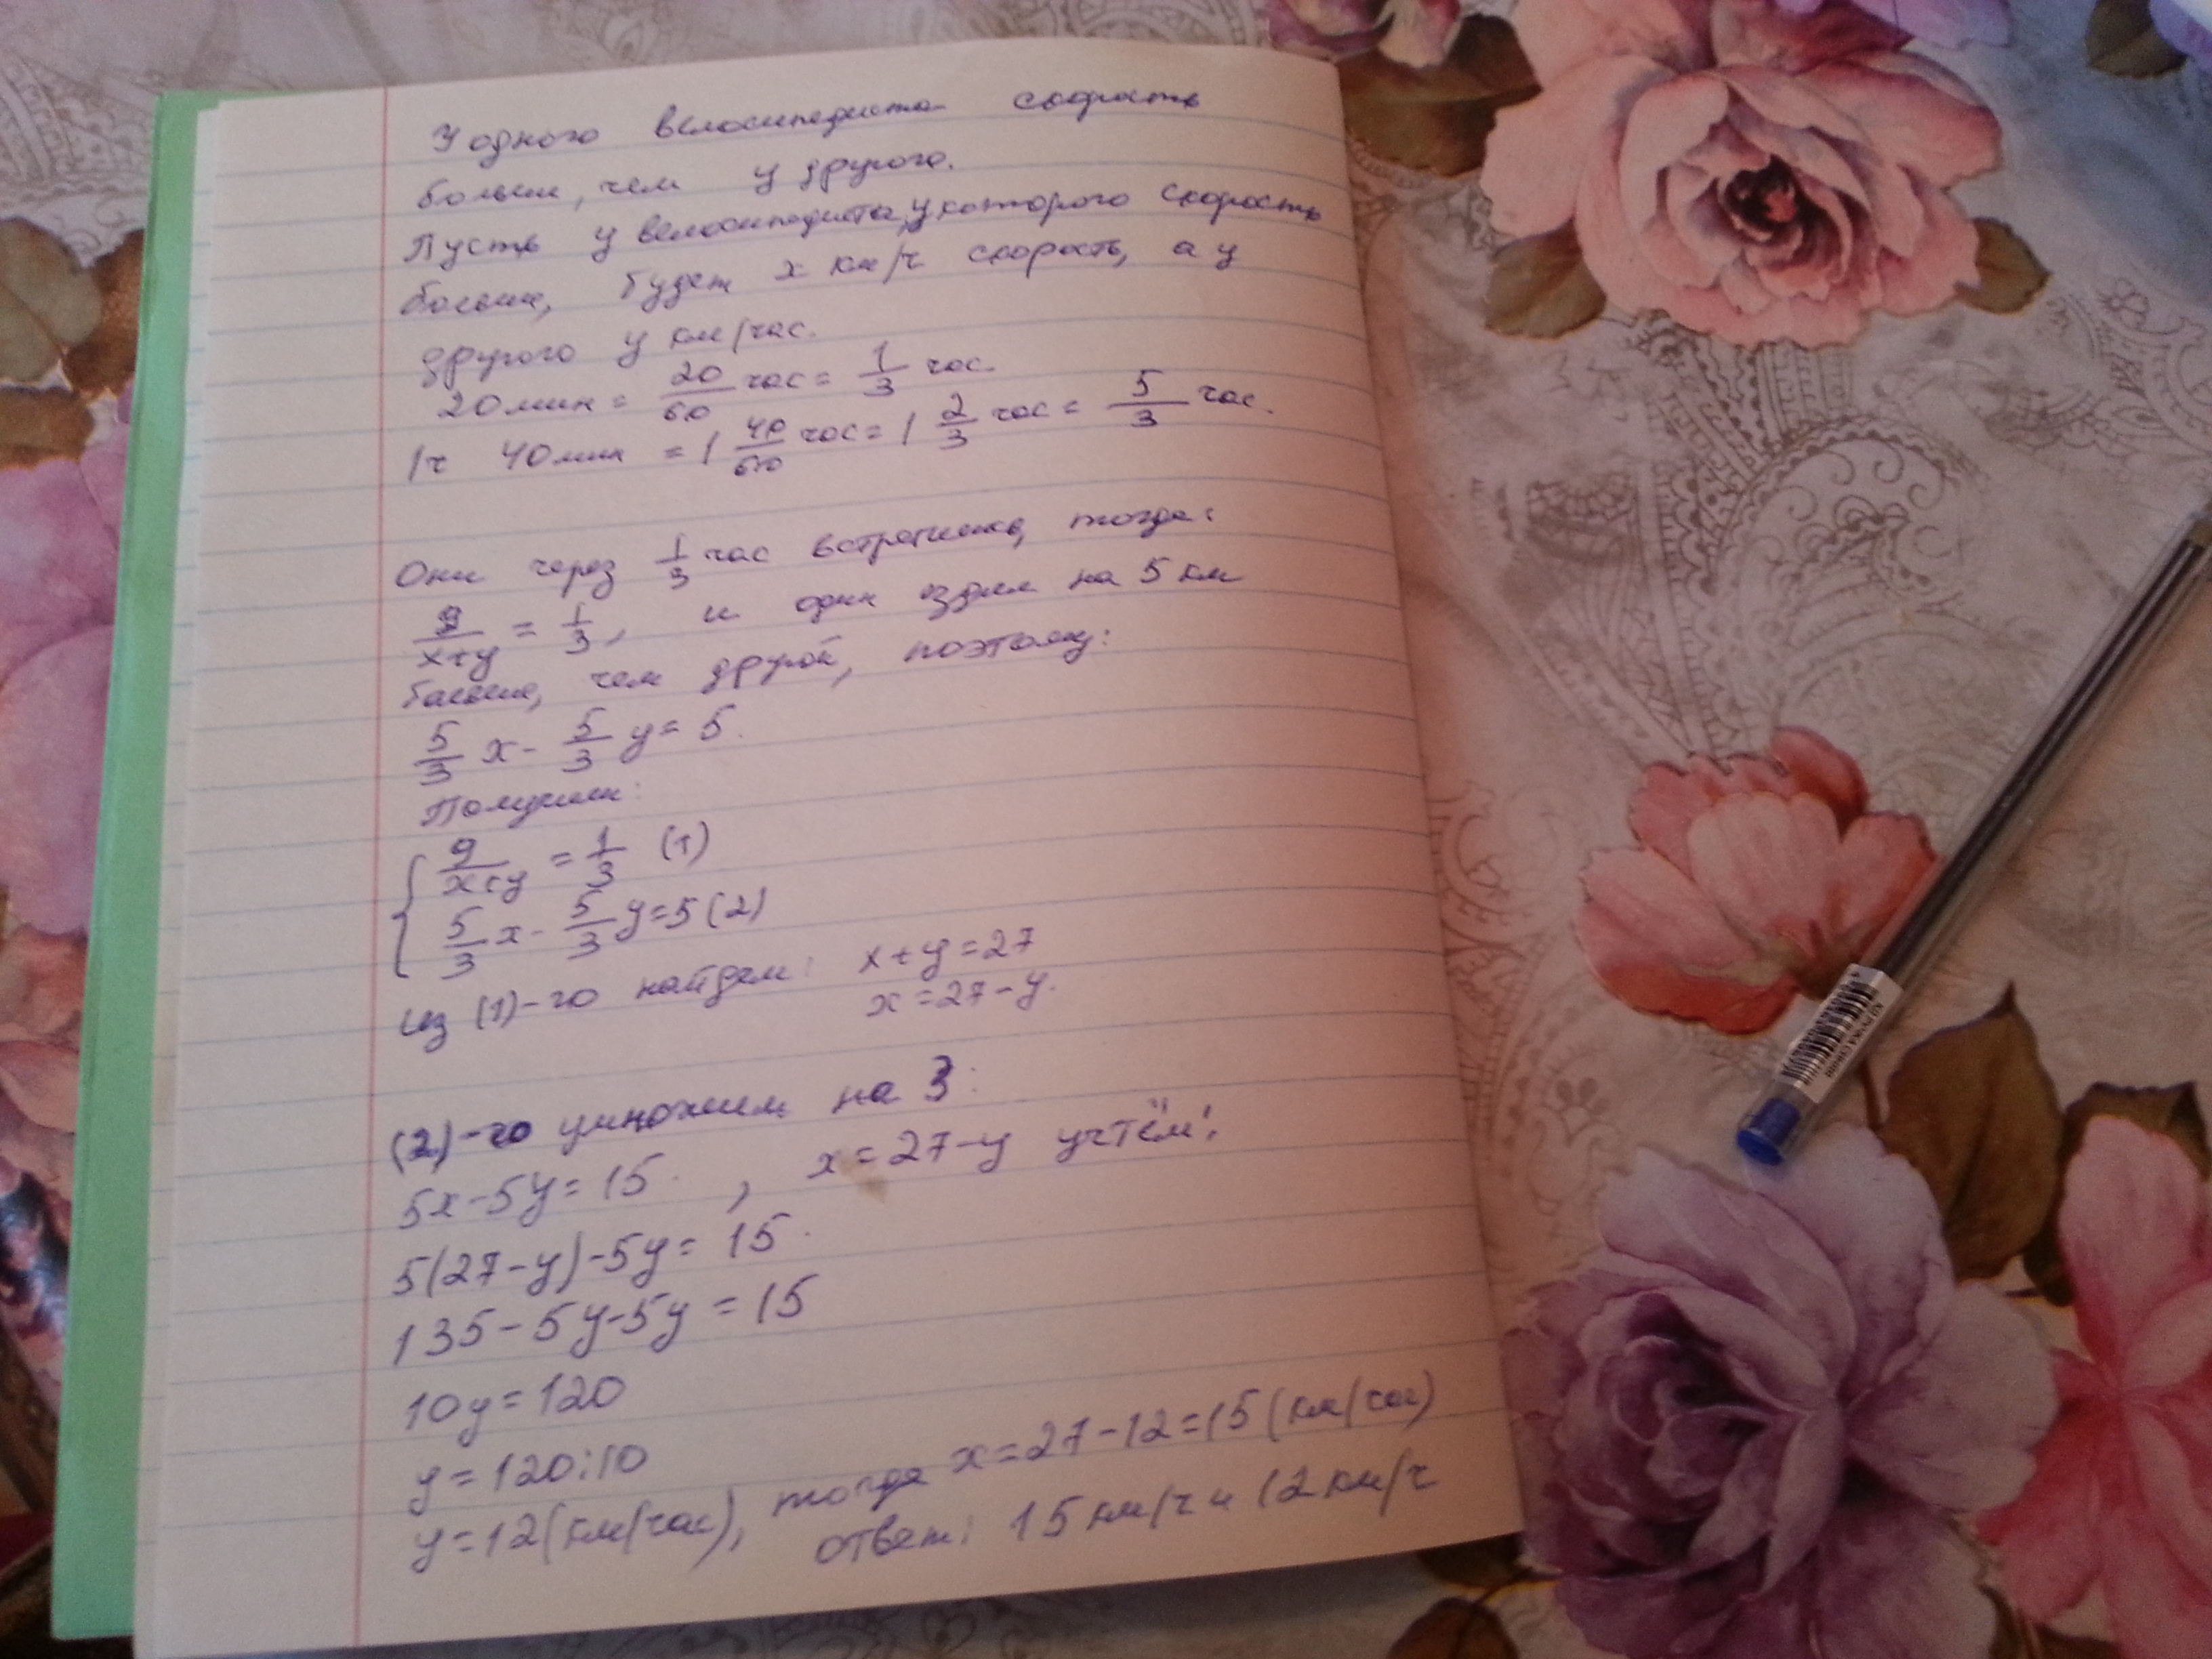 У одного велосипедиста скорость
больше, чем у другого.
Пусть у велосипедиста, у которого скорость
больше, будет x км/ч скорость, а у
другого y км/час.
20 мин = 20/60 час = 1/3 час.
1ч 40 мин = 1 40/60 час = 1 2/3 час = 5/3 час.
Они через 1/3 час встретились, тогда:
9/(x+y) = 1/3, и один ездил на 5 км
больше, чем другой, поэтому:
5/3 x - 5/3 y = 5.
Получили:
{ 9/(x+y) = 1/3 (1)
5/3 x - 5/3 y = 5 (2)
Из (1)-го найдем: x+y=27
x=27-y.
(2)-го умножим на 3:
5x-5y=15. , x=27-y учтём:
5(27-y)-5y=15.
135-5y-5y=15
10y=120
y=120:10
y=12(км/час), тогда x=27-12=15(км/час)
ответ: 15 км/ч и 12 км/ч